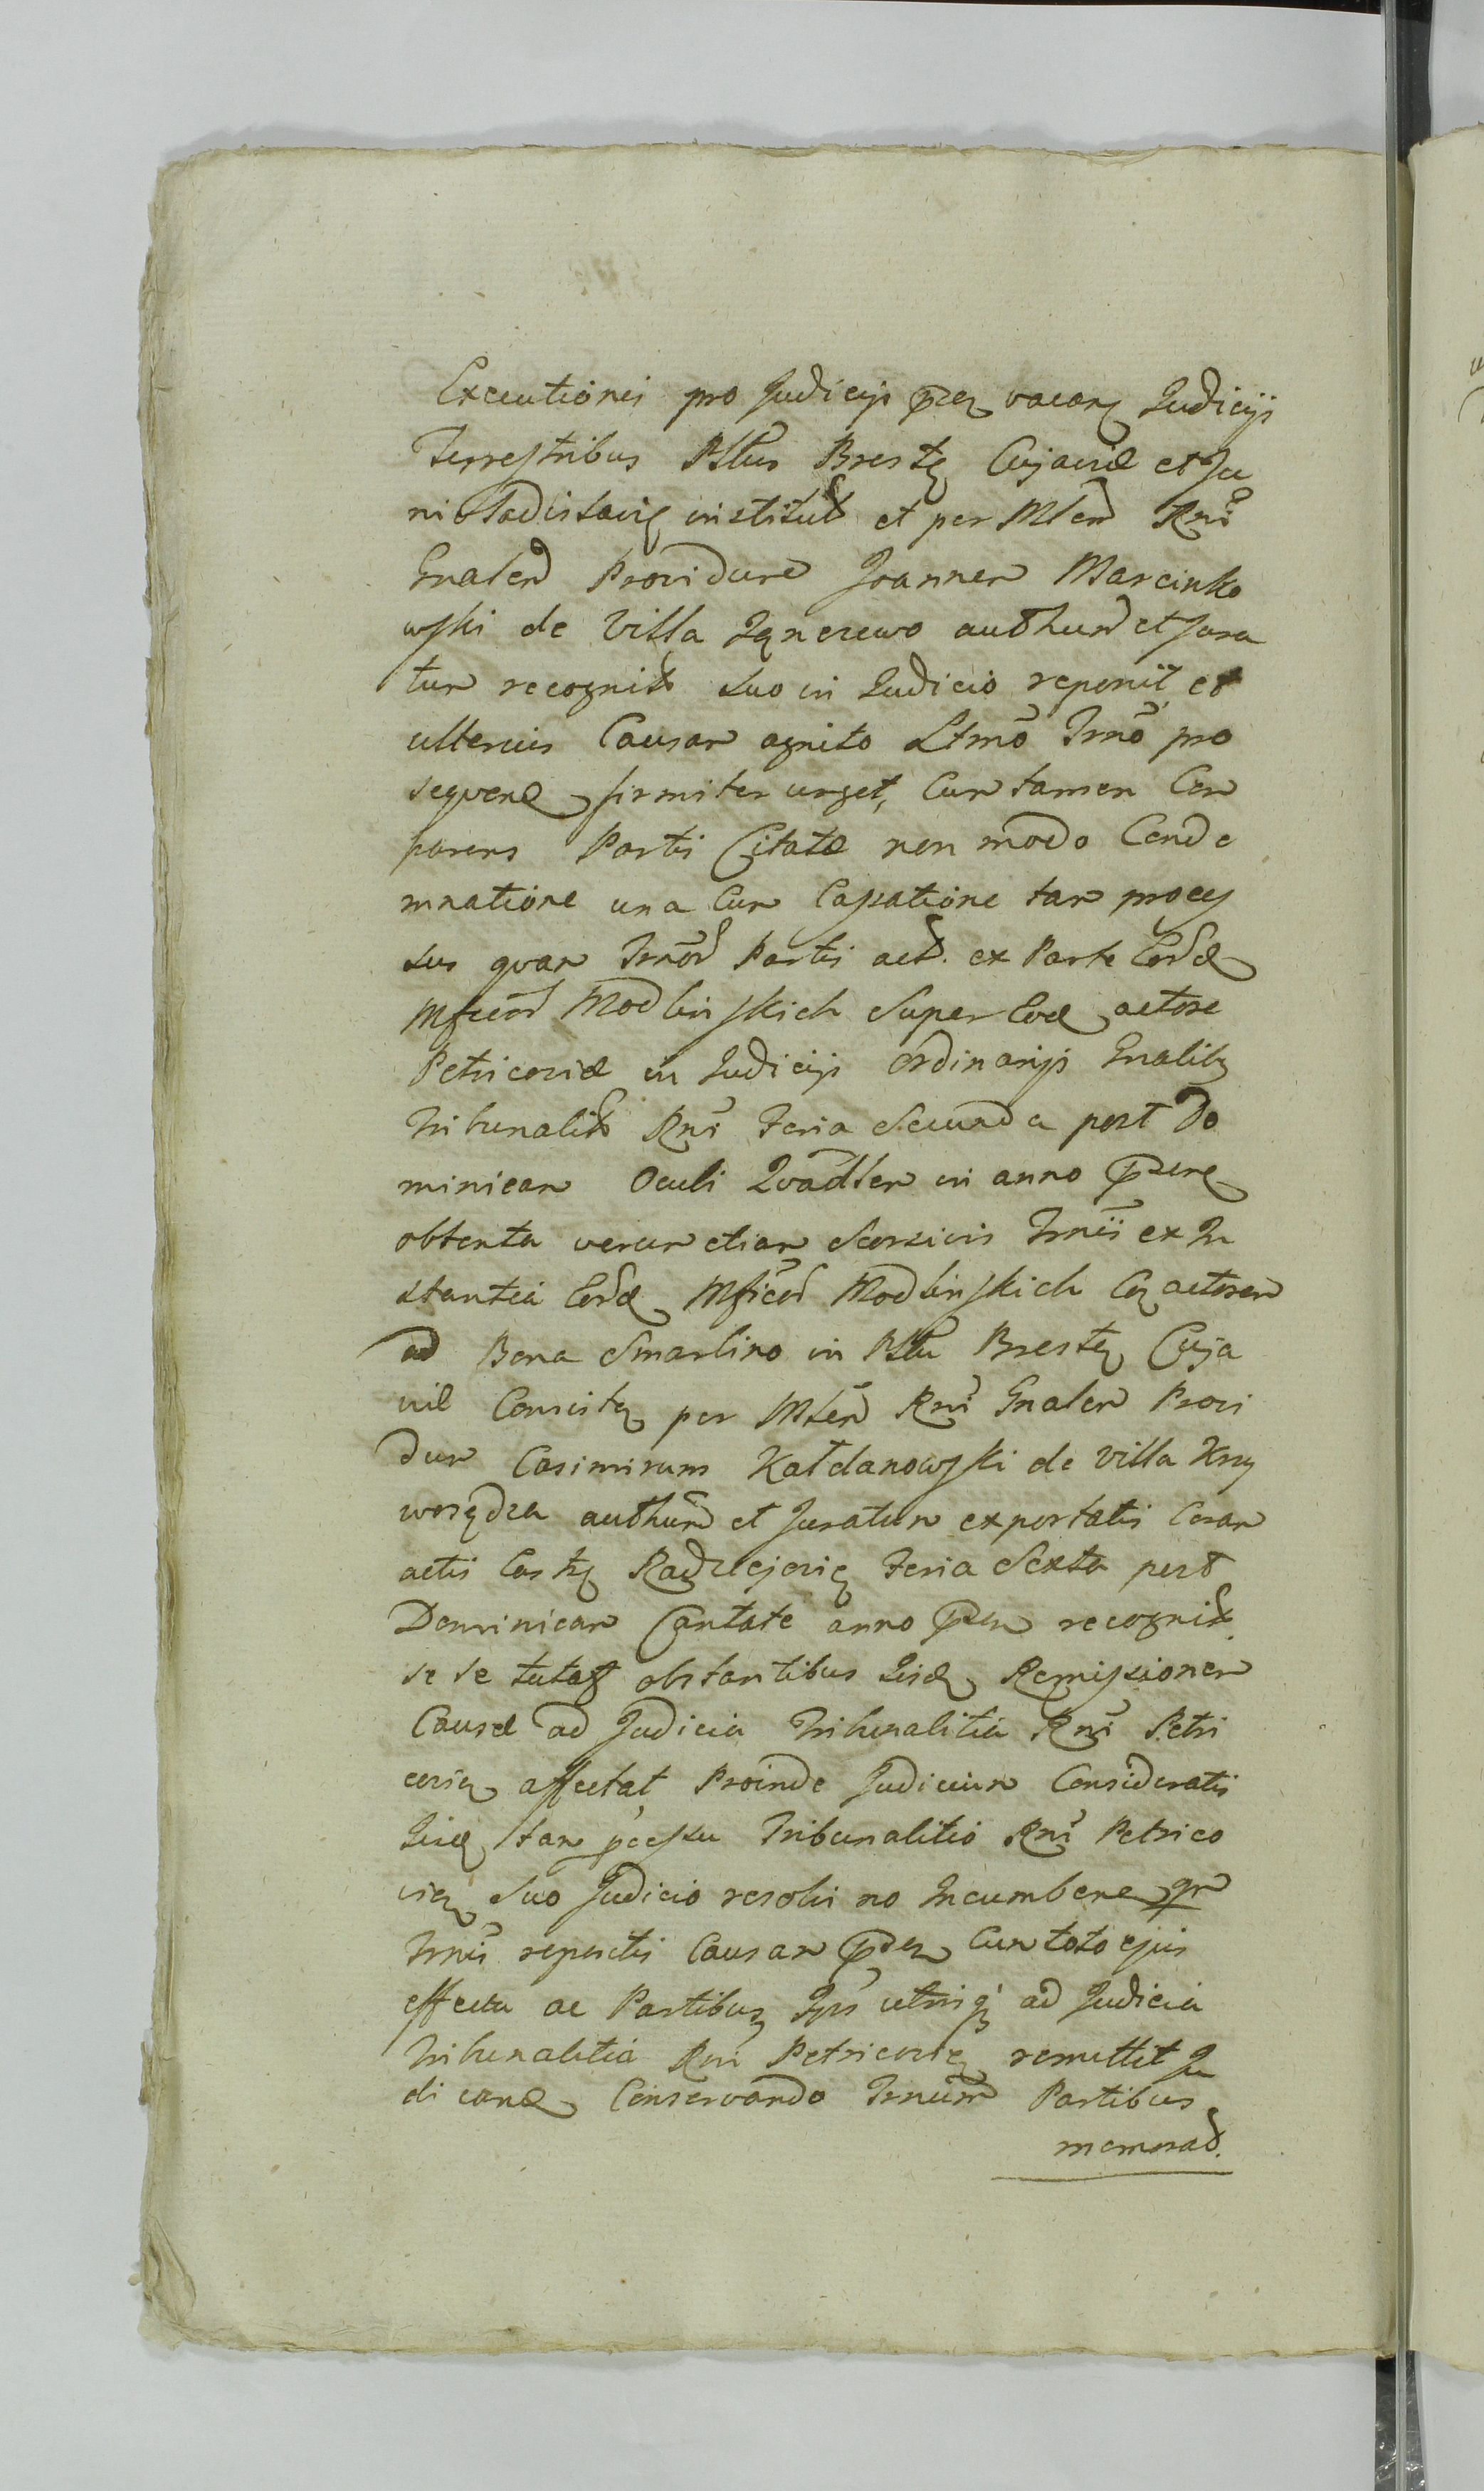 Executionis pro Judicijs pñ vacañ Judicijs
Terrestribus Pllus Brestę Cujaviæ et Ju
niuladislavię institut et per Mlem Rñi
Gnalem Providum Joannem Marcinko
wski de Villa authum et Jura
tum recognit suo in Judicio reponit, et
ulterius Causam agnito Ltmõ Trnõ pro
sequend firmiter urget, Cum tamen Com
parens Partis Citatæ non modo Conde
mnatione una Cum Cassatione tam proces
sus quam Trnor Partis act. ex Parte Eord
Mficor Modlinskich super Eod actore
Petricoviæ in Judicijs ordinarijs Gnalibȝ
Tribunalit Rñi Feria Secunda post Do
minicam Oculi Quadlem in anno pñ
obtenta verum etiam Trñi ex In
stantia Eord Mficor Modlinskich Coactorem
ad Bona Smarlino in Pltu Brestę Cuja
viæ Consistę per Mlem Rñi Gnalem Provi
dum Casimirum Kałdanowski de Villa Krzy
worędza authum et Juratum exportatis Coram
actis Castrę Radziejovię Feria Sexta post
Dominicam Cantate anno pñ recognit
se se tutat obstantibus Iisd Remissionem
Causæ ad Judicia Tribunalitia Rñi Petri
covię affectat, Proinde Judicium Consideratis
Iisd tam pcessu Tribunalitio Rñi Petrico
vię suo Judicio resolvi no Incumbere qm
Trñis repertis Causam pñ Cum toto ejus
effectu ac Partibus Iis utrisqȝ ad Judicia
Tribunalitia Rñi Petricovię remittit Ju
dicand Conservando Trnum Partibus
memorat.